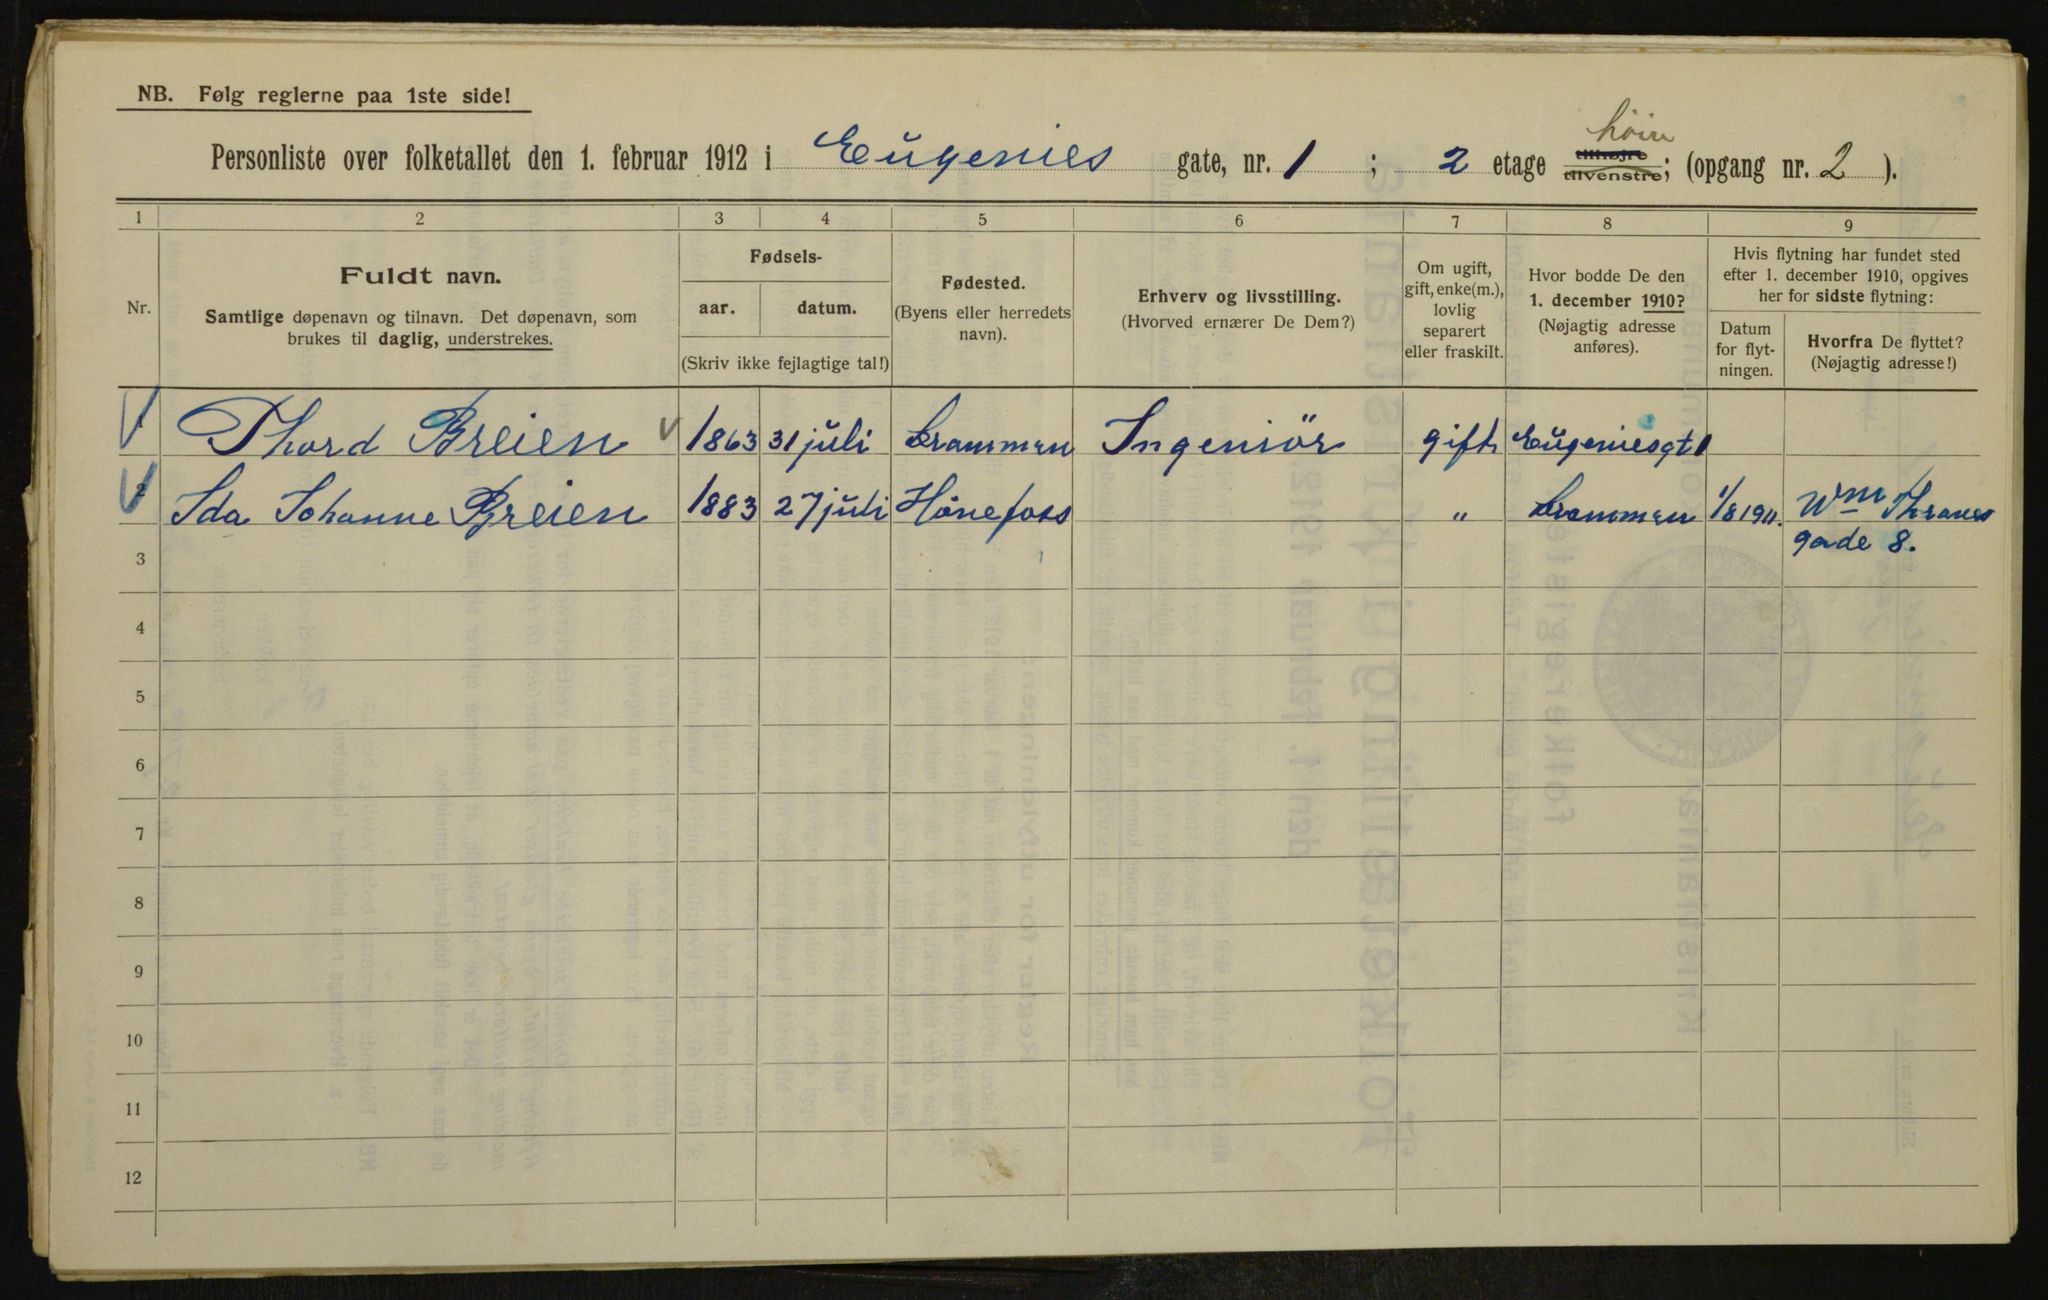 NB. Følg reglerne paa 1ste side!
høire
Personliste over folketallet den 1. februar 1912 i Eugenies gate, nr. 1 ; 2 etage tilhøjre tilvenstre; (opgang nr. 2 ).
1 2 3 4 5 6 7 8 9
Nr.
Fuldt navn.
Samtlige døpenavn og tilnavn. Det døpenavn, som
brukes til daglig, understrekes.
Fødsels-
aar. datum.
(Skriv ikke fejlagtige tal!)
Fødested.
(Byens eller herredets
navn).
Erhverv og livsstilling.
(Hvorved ernærer De Dem?)
Om ugift,
gift, enke(m.),
lovlig
separert
eller fraskilt.
Hvor bodde De den
1. december 1910?
(Nøjagtig adresse
anføres).
Hvis flytning har fundet sted
efter 1. december 1910, opgives
her for sidste flytning:
Datum
for flyt-
ningen.
Hvorfra De flyttet?
(Nøjagtig adresse!)
1 Thord Breien 1863 31 juli Drammen Ingeniör gift Eugeniesgt 1
2 Ida Johanne Breien 1883 27 juli Hönefoss " Drammen 1/8 1911. Wm Thranes
gade 8.
3
4
5
6
7
8
9
10
11
12